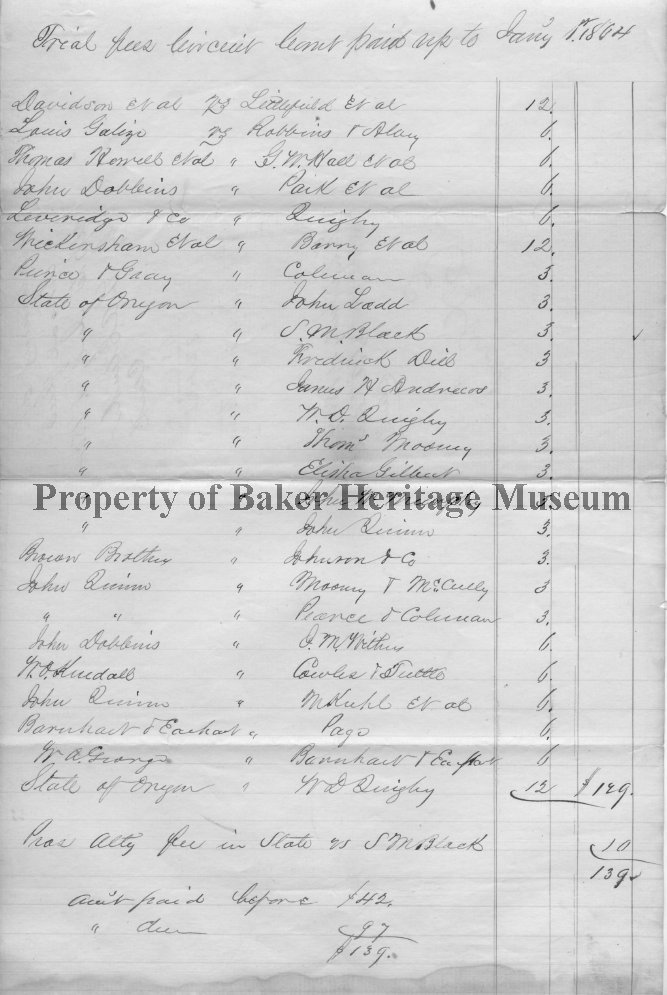 Trial fees Circuit Court paid up to Jan'y 1st 1864
Davidson Et al vs Littlefield Et al 12.
Louis Galize vs Robbins & Alvey 6.
Thomas Howell Et al " G. W. Hall Et al 6.
John Dobbins " Park Et al 6.
Leveridge & Co " Quigby 6.
Wickersham Et al " Barry Et al 12.
Peirce & Gray " Coleman 3.
State of Oregon " John Ladd 3.
" " S. M. Black 3.
" " Fredrick Dill 3
" " James H Andrews 3.
" " W. D. Quigby 3.
" " Thoms Mooney 3.
" " Elisha Gilbert 3.
Property of Baker Heritage Museum
" " John
" " John Quinn 3.
Brown Brothers " Johnson & Co 3.
John Quinn " Mooney & McCully 3
" " " Pearce & Coleman 3.
John Dobbins " Withers 6.
Kendall " Cowles & Tuttle 6.
John Quinn " McKuhl Et al 6.
Barnhart & Earhart " Page 6.
W. A. George " Barnhart & Earhart 6
State of Oregon " W D Quigby 12 $129.
Pros Atty fee in State vs S M Black 10
139.
Am't paid before $42.
" due 97
$139.